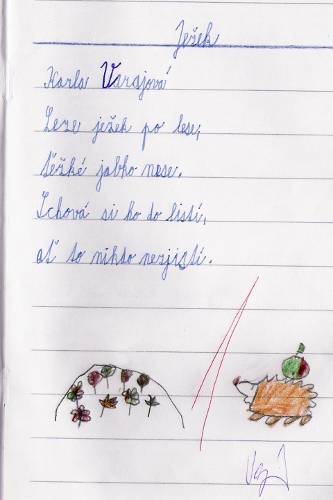 Ježek
Karla Varajová
Leze ježek po lese,
těžké jabko nese.
Schová si ho do listí,
ať to nikdo nezjistí.